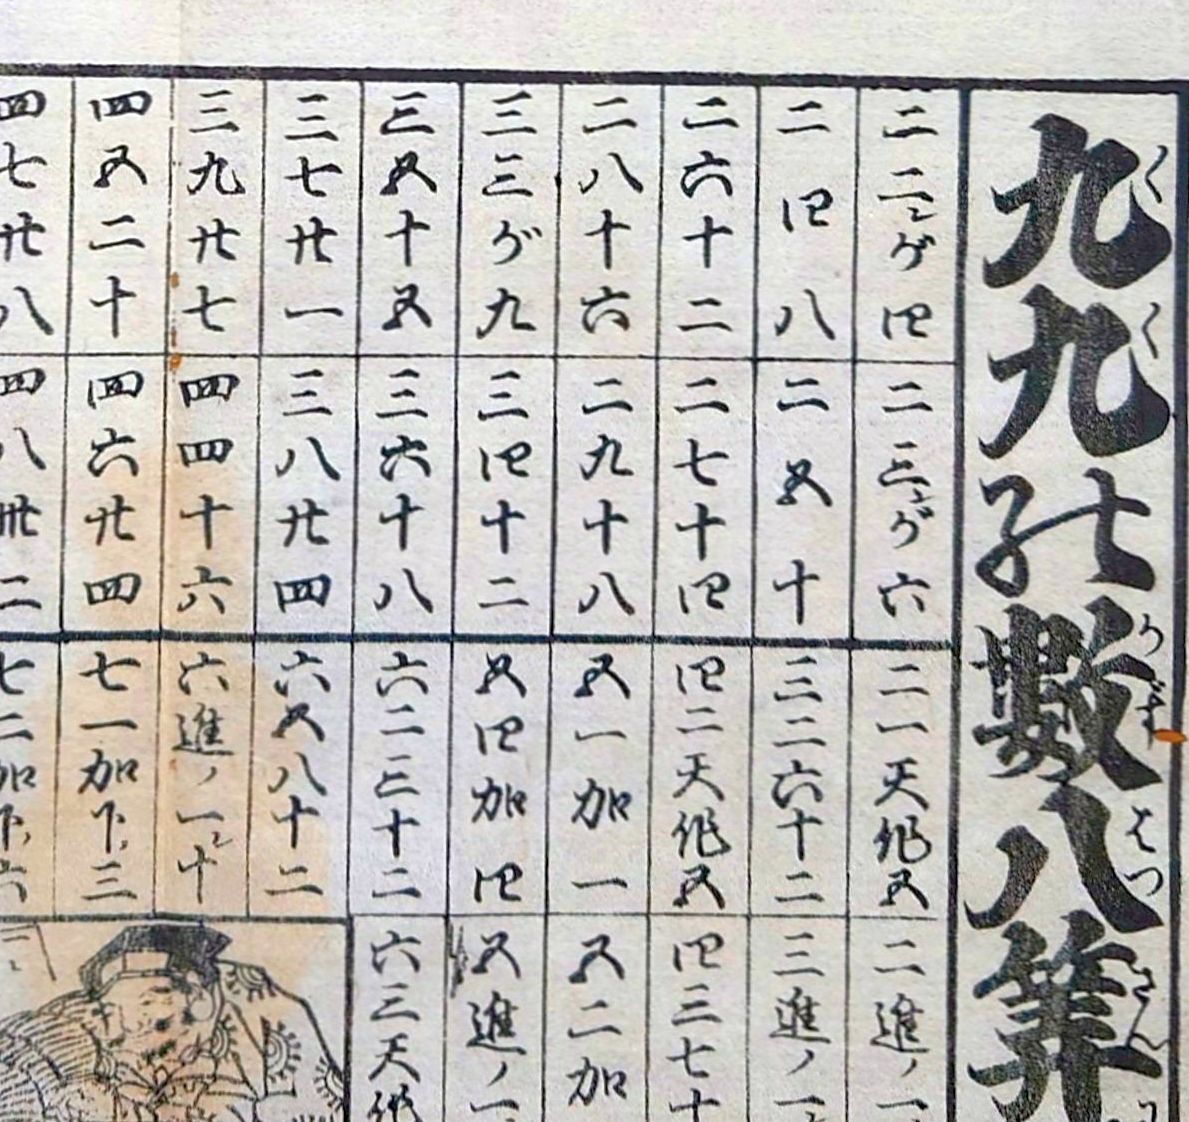 九九の数八算
くくかずはつさん
二二ヶ四
二四八
二六十二
二八十六
三三ヶ九
三五十五
三七廿一
三九廿七
四五二十
四七廿八
二三ヶ六
二五十
二七十四
二九十八
三四十二
三六十八
三八廿四
四四十六
四六廿四
四八卅二
二一天作五
三二六十二
四二天作五
五一加一
五四加四
六二三十二
六五八十二
六進ノ一十
七一加下三
七二加下六
二進ノ一
三進ノ一
四三七十
五二加
五進ノ一
六三天作